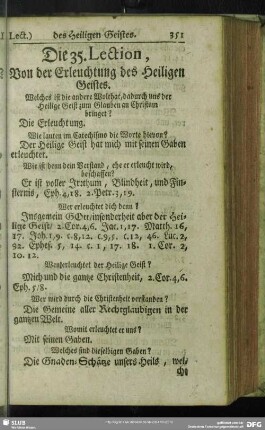 Lect.) des Heiligen Geistes. 351
Die 35. Lection,
Von der Erleuchtung des Heiligen
Geistes.
Welches ist die andere Wolthat, dadurch uns der
Heilige Geist zum Glauben an Christum
bringet?
Die Erleuchtung.
Wie lauten im Catechismo die Worte hievon?
Der Heilige Geist hat mich mit seinen Gaben
erleuchtet.
Wie ist denn dein Verstand, ehe er erleucht wird,
beschaffen?
Er ist voller Irrthum, Blindheit, und Fin-
sternis, Eph. 4,18. 2. Petr. 3,19.
Wer erleuchtet dich denn?
Insgemein GOtt/insonderheit aber der Hei-
lige Geist/ 2. Cor. 4,6. Jac. 1,17. Matth. 16,
17. Joh. 1,9. c. 8,12. c. 9,5. c. 12, 46. Luc. 2,
92. Ephes. 5, 14. c. 1, 17. 18. 1. Cor. 2,
10. 12.
Wen erleuchtet der Heilige Geist?
Mich und die gantze Christenheit, 2. Cor. 4,6.
Eph. 5/8.
Wer wird durch die Christenheit verstanden?
Die Gemeine aller Rechtglaubigen in der
gantzen Welt.
Womit erleuchtet er uns?
Mit seinen Gaben.
Welches sind dieselbigen Gaben?
Die Gnaden-Schätze unsers Heils, wel-
che
SLUB
DFG